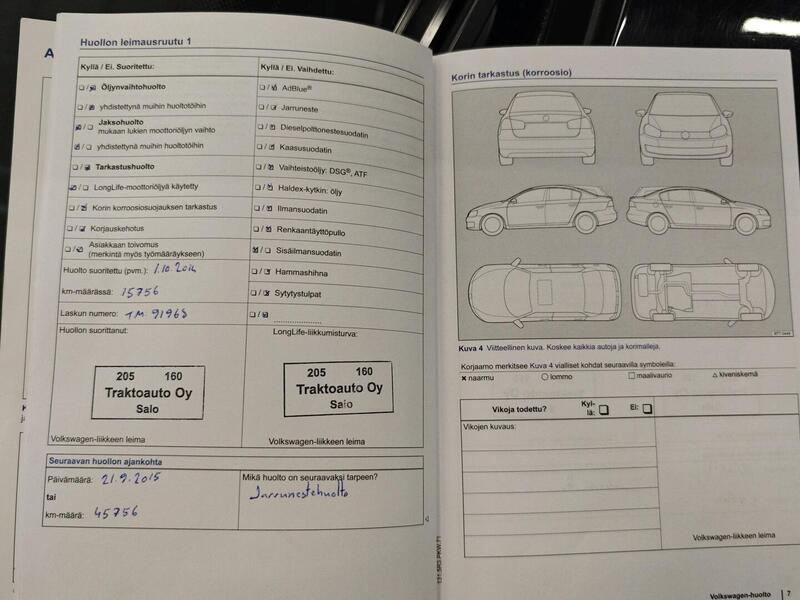 A
Huollon leimausruutu 1
Kyllä / Ei. Suoritettu:
Öljynvaihtohuolto
yhdistettynä muihin huoltotöihin
Jaksohuolto
mukaan lukien moottoriöljyn vaihto
yhdistettynä muihin huoltotöihin
Tarkastushuolto
LongLife-moottoriöljyä käytetty
Korin korroosiosuojauksen tarkastus
Korjauskehotus
Asiakkaan toivomo
(merkintä myös työmääräykseen)
Huolto suoritettu (pvm.): 1.10.2014
km-määrässä: 15756
Laskun numero: TM 91968
Huollon suorittanut:
205 160
Traktoauto Oy
Salo
Volkswagen-liikkeen leima
Kyllä / Ei. Vaihdettu:
AdBlue®
Jarruneste
Dieselpolttonestesuodatin
Kaasusuodatin
Vaihteistoöljy: DSG®, ATF
Haldex-kytkin: öljy
Ilmansuodatin
Renkaantäyttöpullo
Sisäilmansuodatin
Hammashihna
Sytytystulpat
LongLife-liikkumisturva:
205 160
Traktoauto Oy
Salo
Volkswagen-liikkeen leima
Seuraavan huollon ajankohta
Päivämäärä: 21.9.2015
tai
km-määrä: 45756
Mikä huolto on seuraavaksi tarpeen?
Jarrunestehuolto
131.5R3.PKW.71
Korin tarkastus (korroosio)
Kuva 4 Viitteellinen kuva. Koskee kaikkia autoja ja korimalleja.
Korjaamo merkitsee Kuva 4 vialliset kohdat seuraavilla symboleilla:
naarmu lommo maalivaurio kiveniskemä
Vikoja todettu? Kyl-
lä: Ei:
Vikojen kuvaus:
Volkswagen-liikkeen leima
Volkswagen-huolto 7